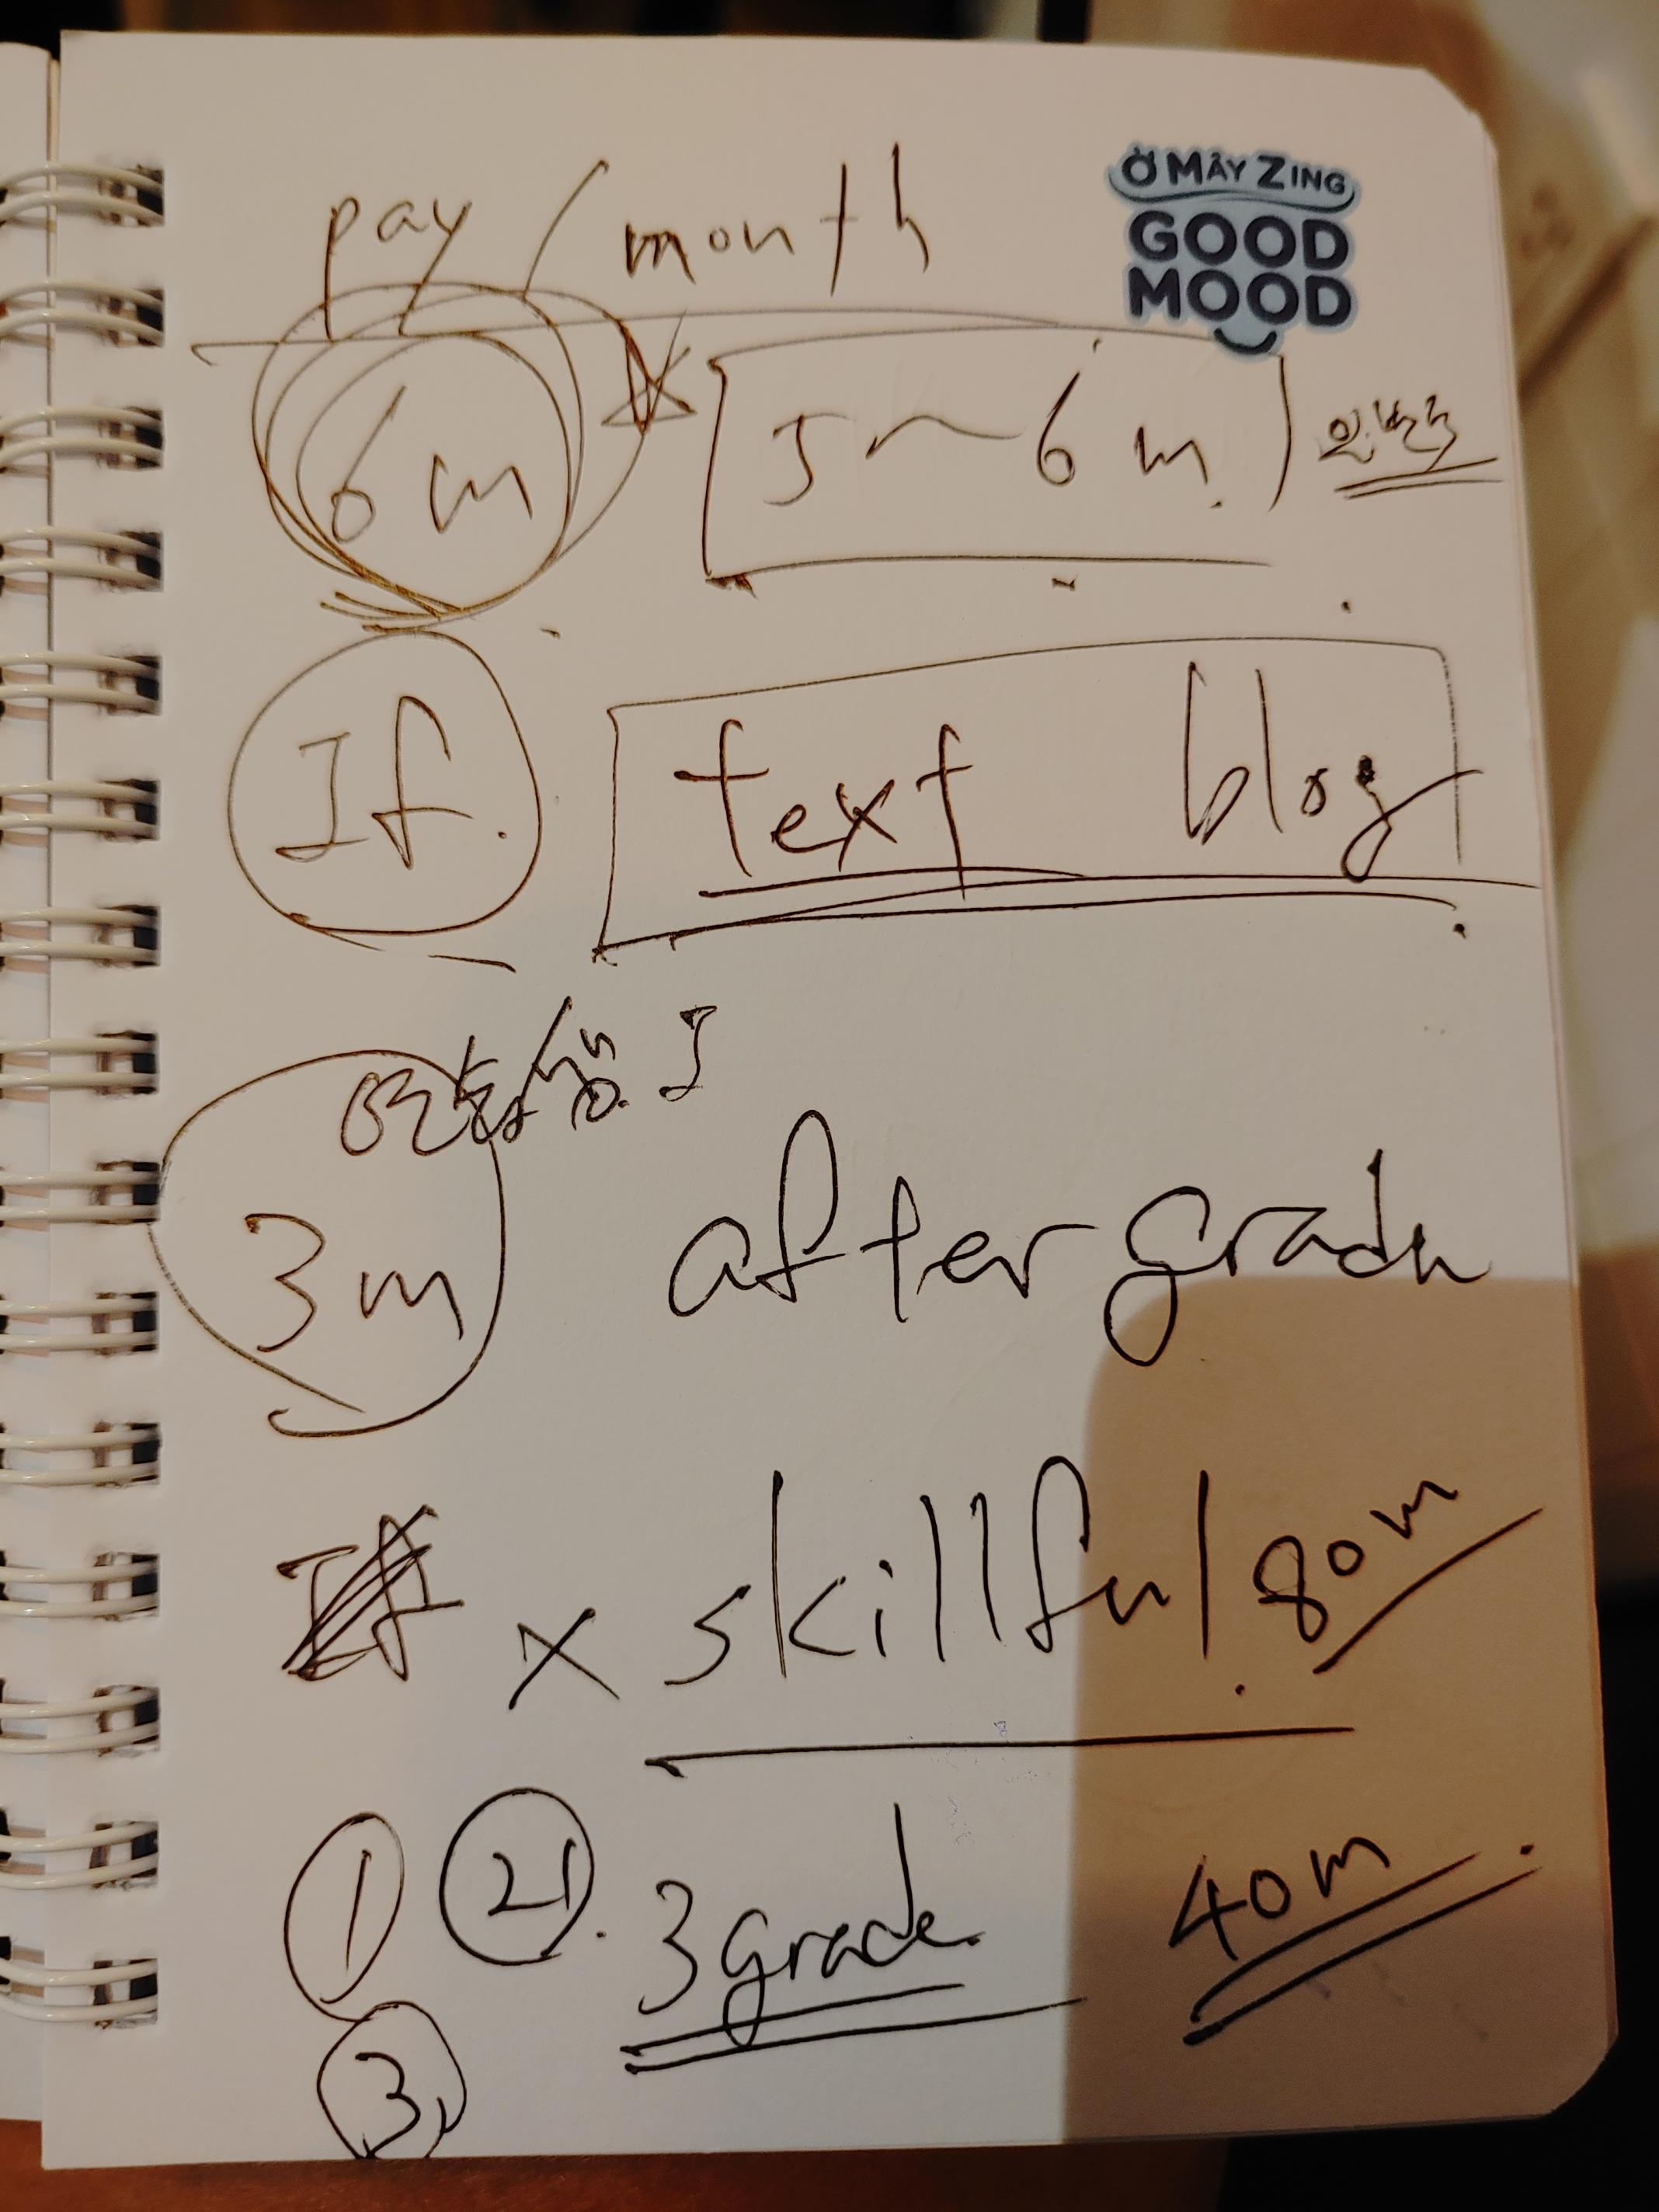 Ờ MÂY ZING
GOOD
MOOD
pay / month
6m [5~6m.]
If. text blog
3m after gradu
x skillful. 80m
① ②. 3 grade. 40m.
③